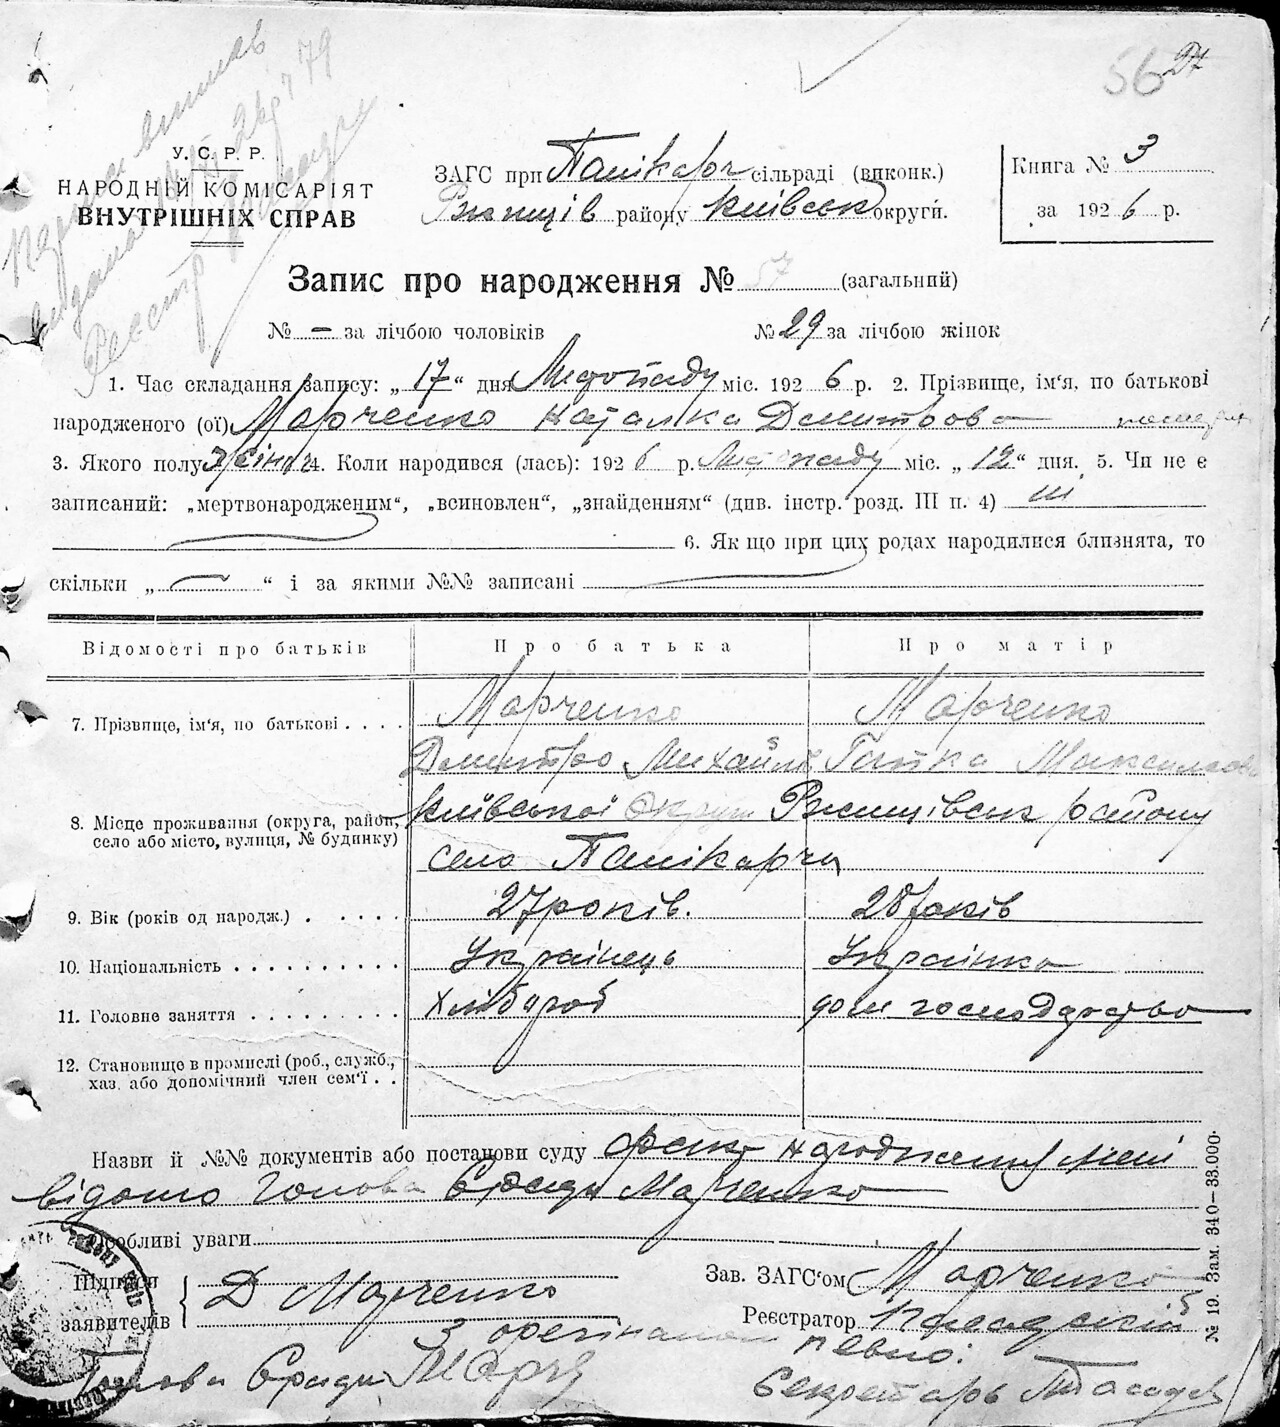 56 27
У. С. Р. Р.
НАРОДНІЙ КОМІСАРІЯТ
ВНУТРІШНІХ СПРАВ
ЗАГС при Панікарч сільраді (виконк.)
Ржищів району Київськ округи.
Книга № 3
за 1926 р.
Запис про народження № 57 (загальний)
№ — за лічбою чоловіків № 29 за лічбою жінок
1. Час складання запису: „17“ дня Листопаду міс. 1926 р. 2. Прізвище, ім'я, по батькові
народженого (ої) Марченко Наталка Дмитрова
3. Якого полу жіноч 4. Коли народився (лась): 1926 р. Листопаду міс. „12“ дня. 5. Чи не є
записаний: „мертвонародженим“, „всиновлен“, „знайденням“ (див. інстр. розд. III п. 4) ні
6. Як що при цих родах народилися близнята, то
скільки „ “ і за якими №№ записані
Відомості про батьків Про батька Про матір
7. Прізвище, ім'я, по батькові . . . . Марченко Марченко
Дмитро Михайлів Гапка Максимова
8. Місце проживання (округа, район, село або місто, вулиця, № будинку) Київської Округи Ржищівськ району
село Панікарчи
9. Вік (років од народж.) . . . . . 27 років. 28 років
10. Національність . . . . . . . . . . Українець Українка
11. Головне заняття . . . . . . . . . Хлібороб дом господарство
12. Становище в промислі (роб., служб.,
хаз. або допомічний член сем'ї . .
Назви й №№ документів або постанови суду факт народження мені
відомо Голова С/ради Марченко
Особливі уваги
Підписи
заявителів Д Марченко
Зав. ЗАГС'ом Марченко
Реєстратор
З орегіналом певно:
Голова С/ради Марч
Секретарь
№ 19. Зам. 340—33.000.